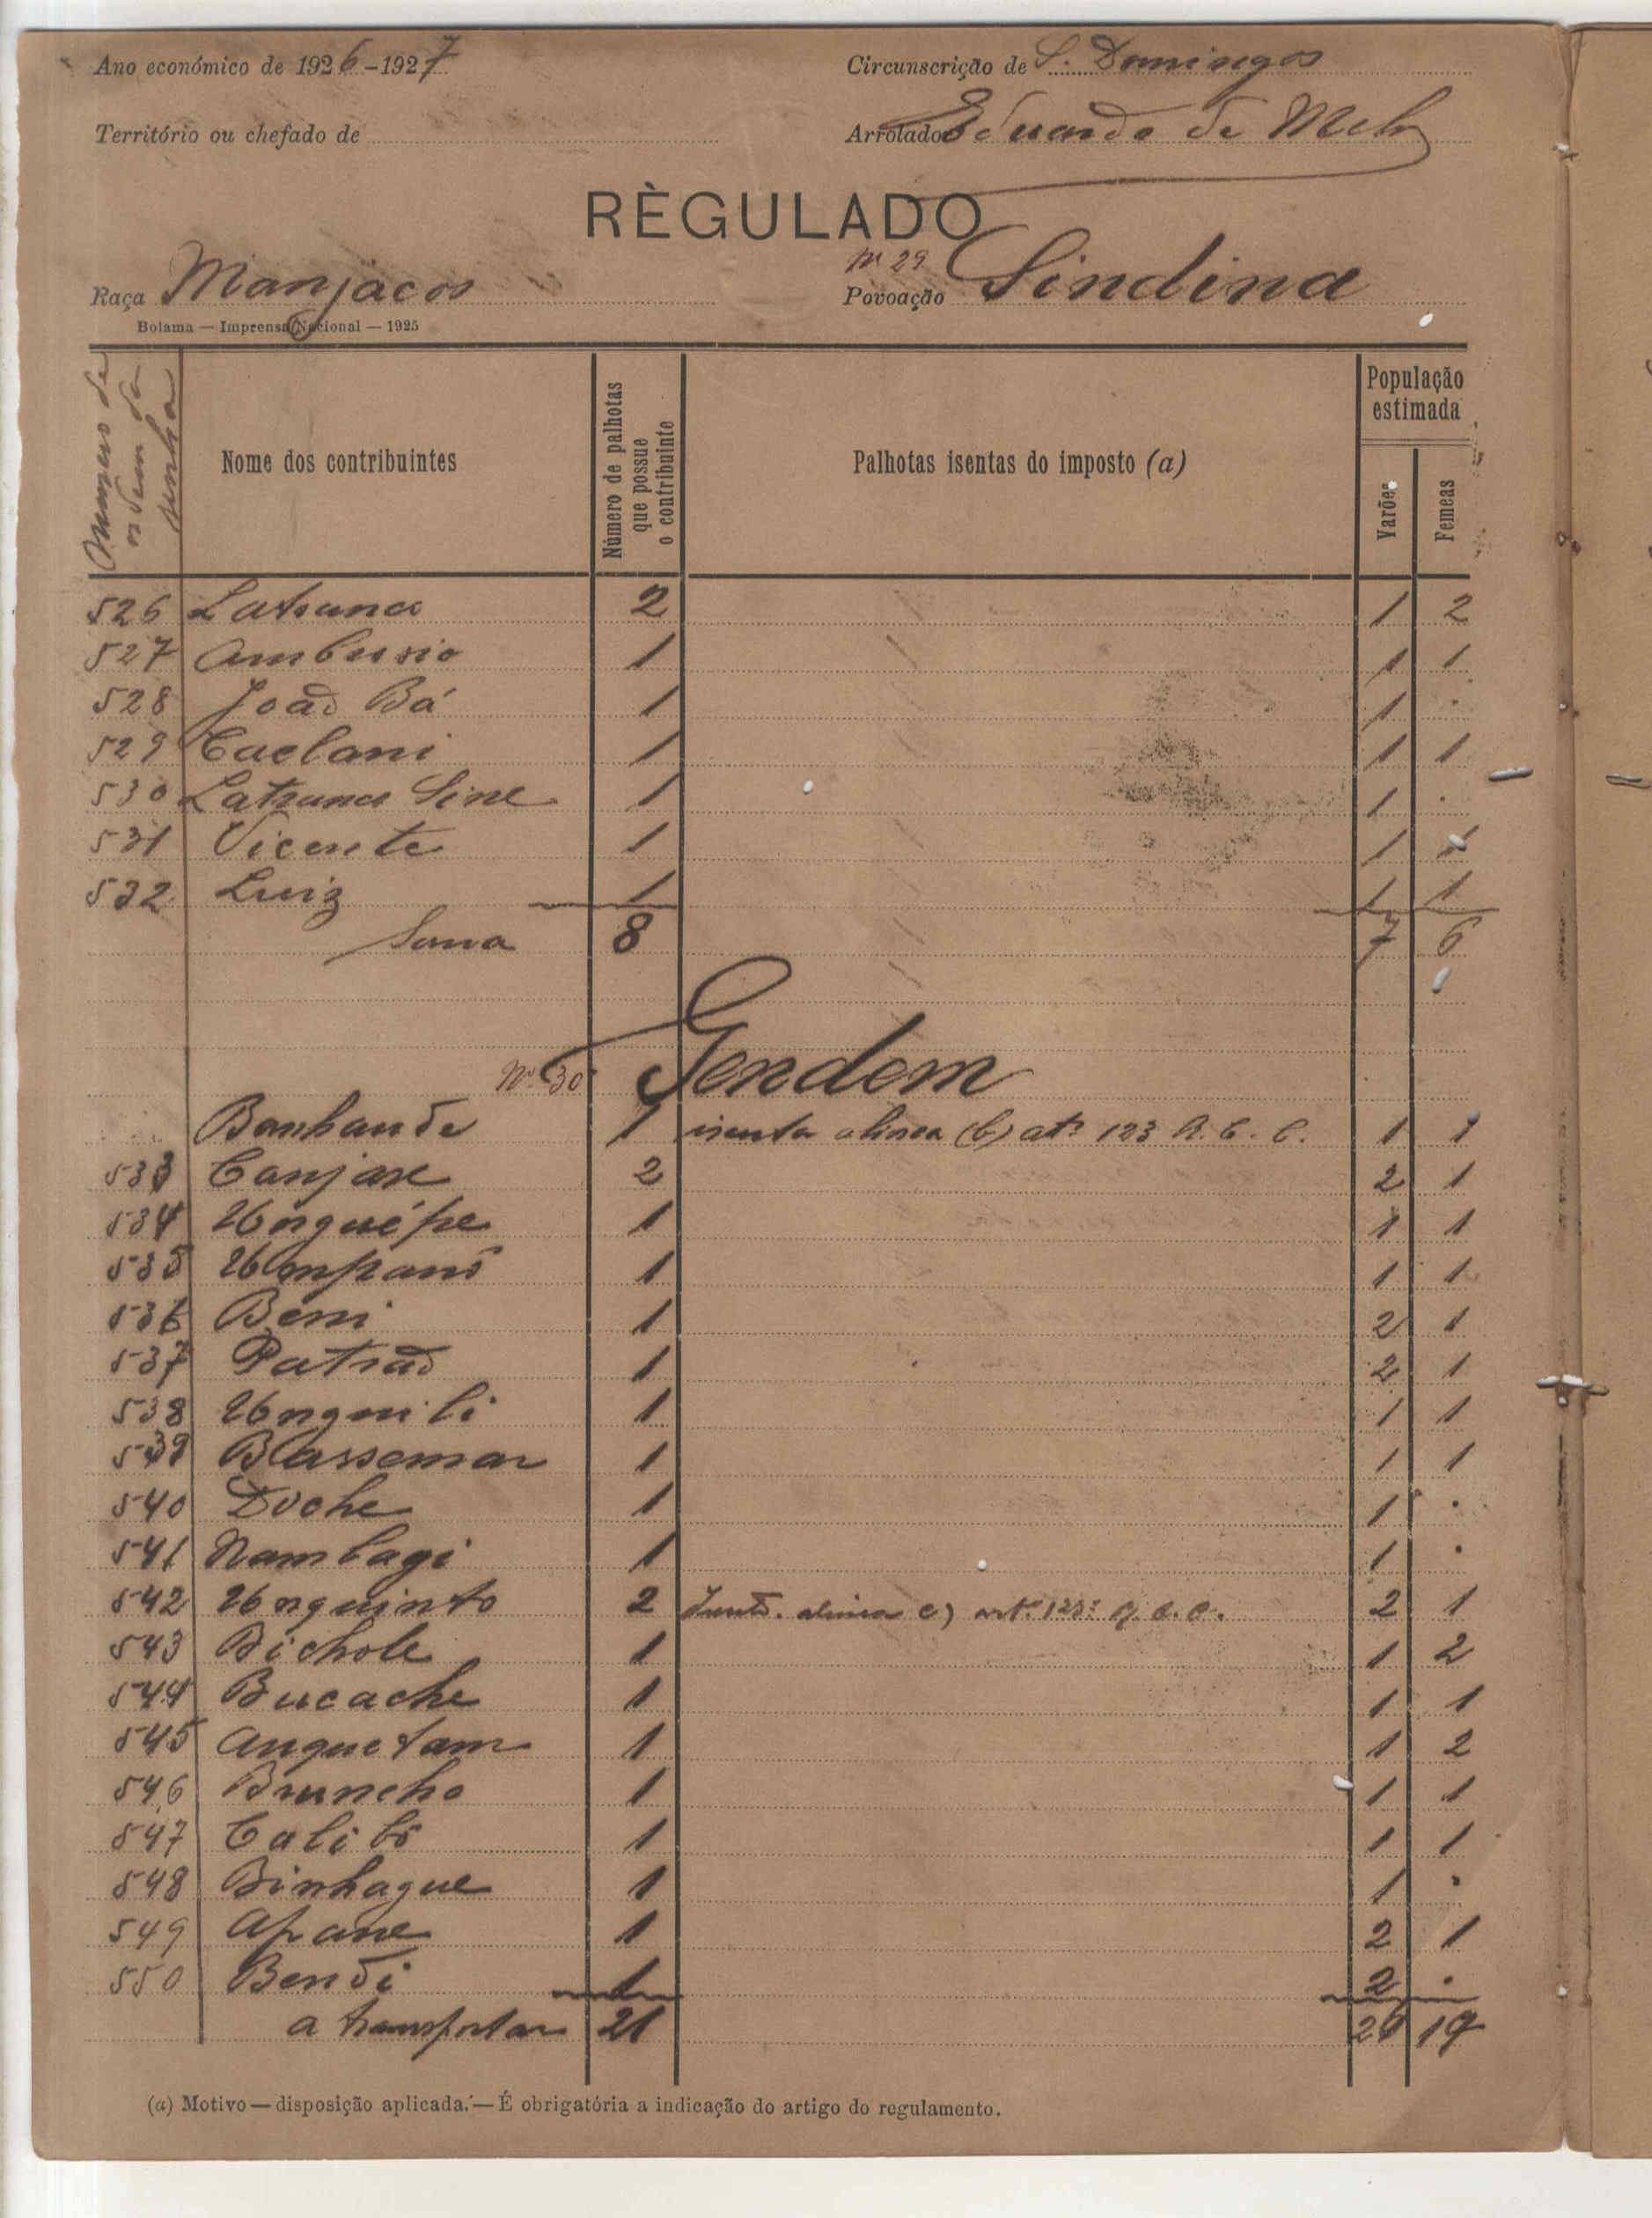 Ano económico de 1926-1927
Circunscrição de S. Domingos
Território ou chefado de
Arrolador Eduardo de Melo
RÈGULADO
Nº 29
Raça Manjacos
Povoação Sindina
Bolama — Imprensa Nacional — 1925
Numero de ordem da senha
Nome dos contribuintes
Número de palhotas que possue o contribuinte
Palhotas isentas do imposto (a)
População estimada
Varões
Femeas
526 Latruna 2 1 2
527 Ambrosio 1 1 1
528 João Bá 1 1 .
529 Caelani 1 1 1
530 Latruna Sine 1 1 .
531 Vicente 1 1 1
532 Luiz 1 1 1
Soma 8 7 6
Nº 30 Gendem
Banhande 1 isenta alinea (b) artº 123 R. C. C. 1 1
533 Canjare 2 2 1
534 Unguépe 1 1 1
535 Umpanô 1 1 1
536 Beni 1 2 1
537 Patrão 1 2 1
538 Unguili 1 1 1
539 Blassemar 1 1 1
540 Doche 1 1 .
541 Nambagi 1 1 .
542 Unquinto 2 alinea c) artº 123º C. C. 2 1
543 Bichole 1 1 2
544 Bucache 1 1 1
545 Anguetam 1 1 2
546 Bruncho 1 1 1
547 Calibô 1 1 1
548 Binhague 1 1 .
549 Apane 1 2 1
550 Bendi 1 2 .
a transportar 21
(a) Motivo — disposição aplicada. — É obrigatória a indicação do artigo do regulamento.